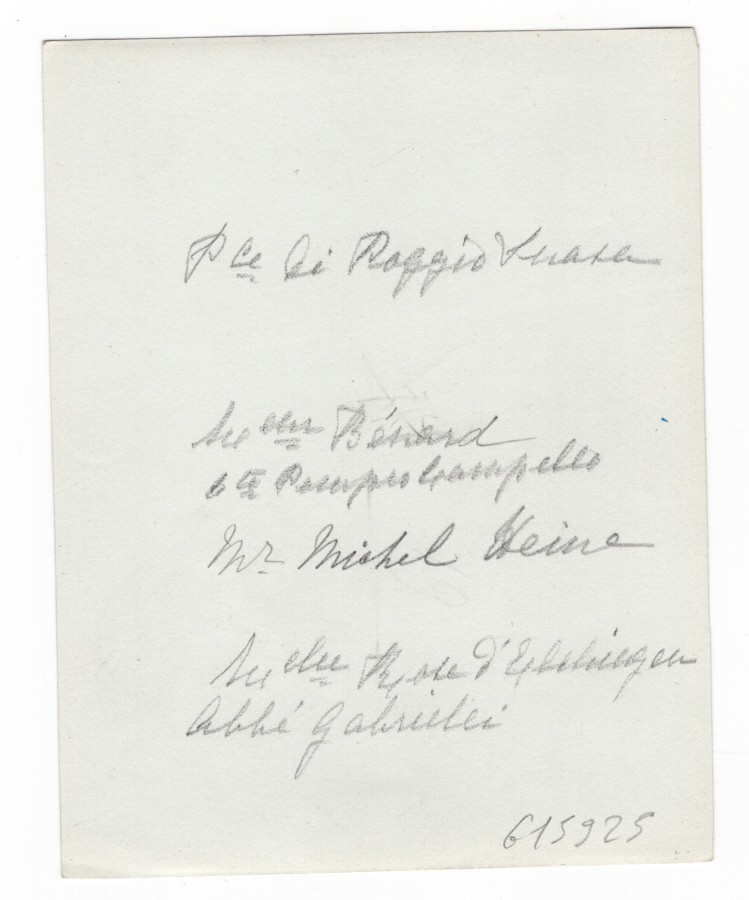 Pce di Poggio Suasa
Melle Bénard
Cte Pompeo Campello
Mr Michel Heine
Melle Rose d'Elchingen
Abbé Gabrieli
615925